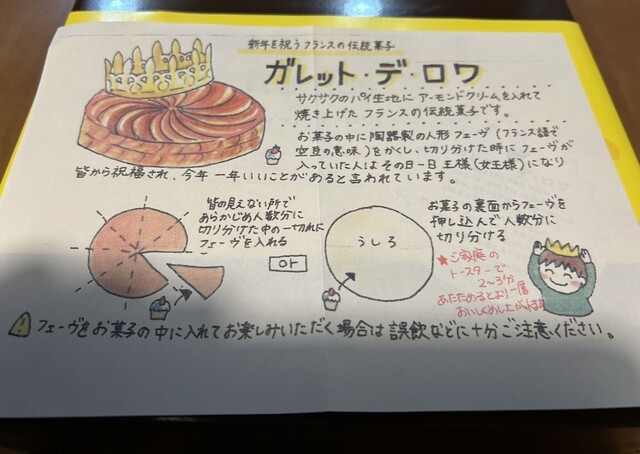 新年を祝うフランスの伝統菓子
ガレット・デ・ロワ
サクサクのパイ生地にアーモンドクリームを入れて
焼き上げたフランスの伝統菓子です。
お菓子の中に陶器製の人形フェーヴ(フランス語で
空豆の意味)をかくし、切り分けた時にフェーヴが
入っていた人はその日一日王様(女王様)になり
皆から祝福され、今年一年いいことがあると言われています。
皆の見えない所で
あらかじめ人数分に
切り分けた中の一切れに
フェーヴを入れる
or
うしろ
お菓子の裏面からフェーヴを
押し込んで人数分に
切り分ける
★ご家庭の
トースターで
2〜3分
あたためるとより一層
おいしくめし上がれます
フェーヴをお菓子の中に入れてお楽しみいただく場合は誤飲などに十分ご注意ください。